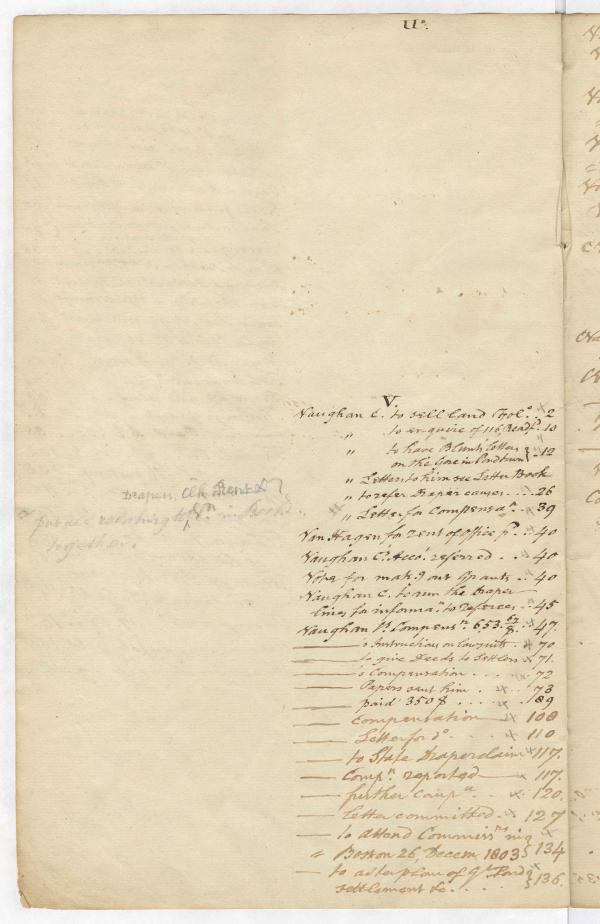 U.
V.
Vaughan C. to sell land Fol.o 2
" to enquire of 10
" to have Blunts letters 12
on the Gore in
" Letters to him see Letter Book
" to refer Draper causes .... 26
" Letter for Compensa.n 39
Van Hagen for rent of office p.r 40
Vaughan C.s Acco.t referred .. 40
Vote for mak.g out Grants .. 40
Vaughan C. to run the Draper
lines for informa.n to referees .. 45
Vaughan Compens.n 653. 47.
——— s Instructions on Lawsuits . 70
——— to give Deeds to Settlers 71.
——— s Compensation .... 72
——— Papers sent him . 73
——— paid 350 $ .... 189
——— Compensation — 108
——— Letter for d.o .. 110
——— to State Draper claim 117.
——— Comp.n reported — 117.
——— further Comp.n . 120.
——— Letter committed . 127
— to attend Commiss.rs
" Boston 26, Decem. 1803 134
— to a plan of 136.
settlement &c. . . .
Drapers,
put all relating to in Books
together.